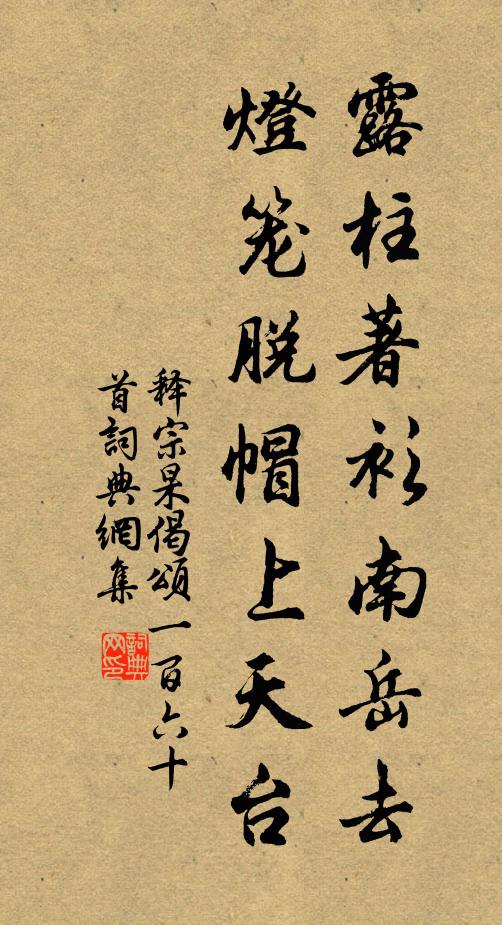 露柱著衫南岳去
燈笼脱帽上天台
释宗杲偈頌一百六十
首詞典網集
詞典
网印